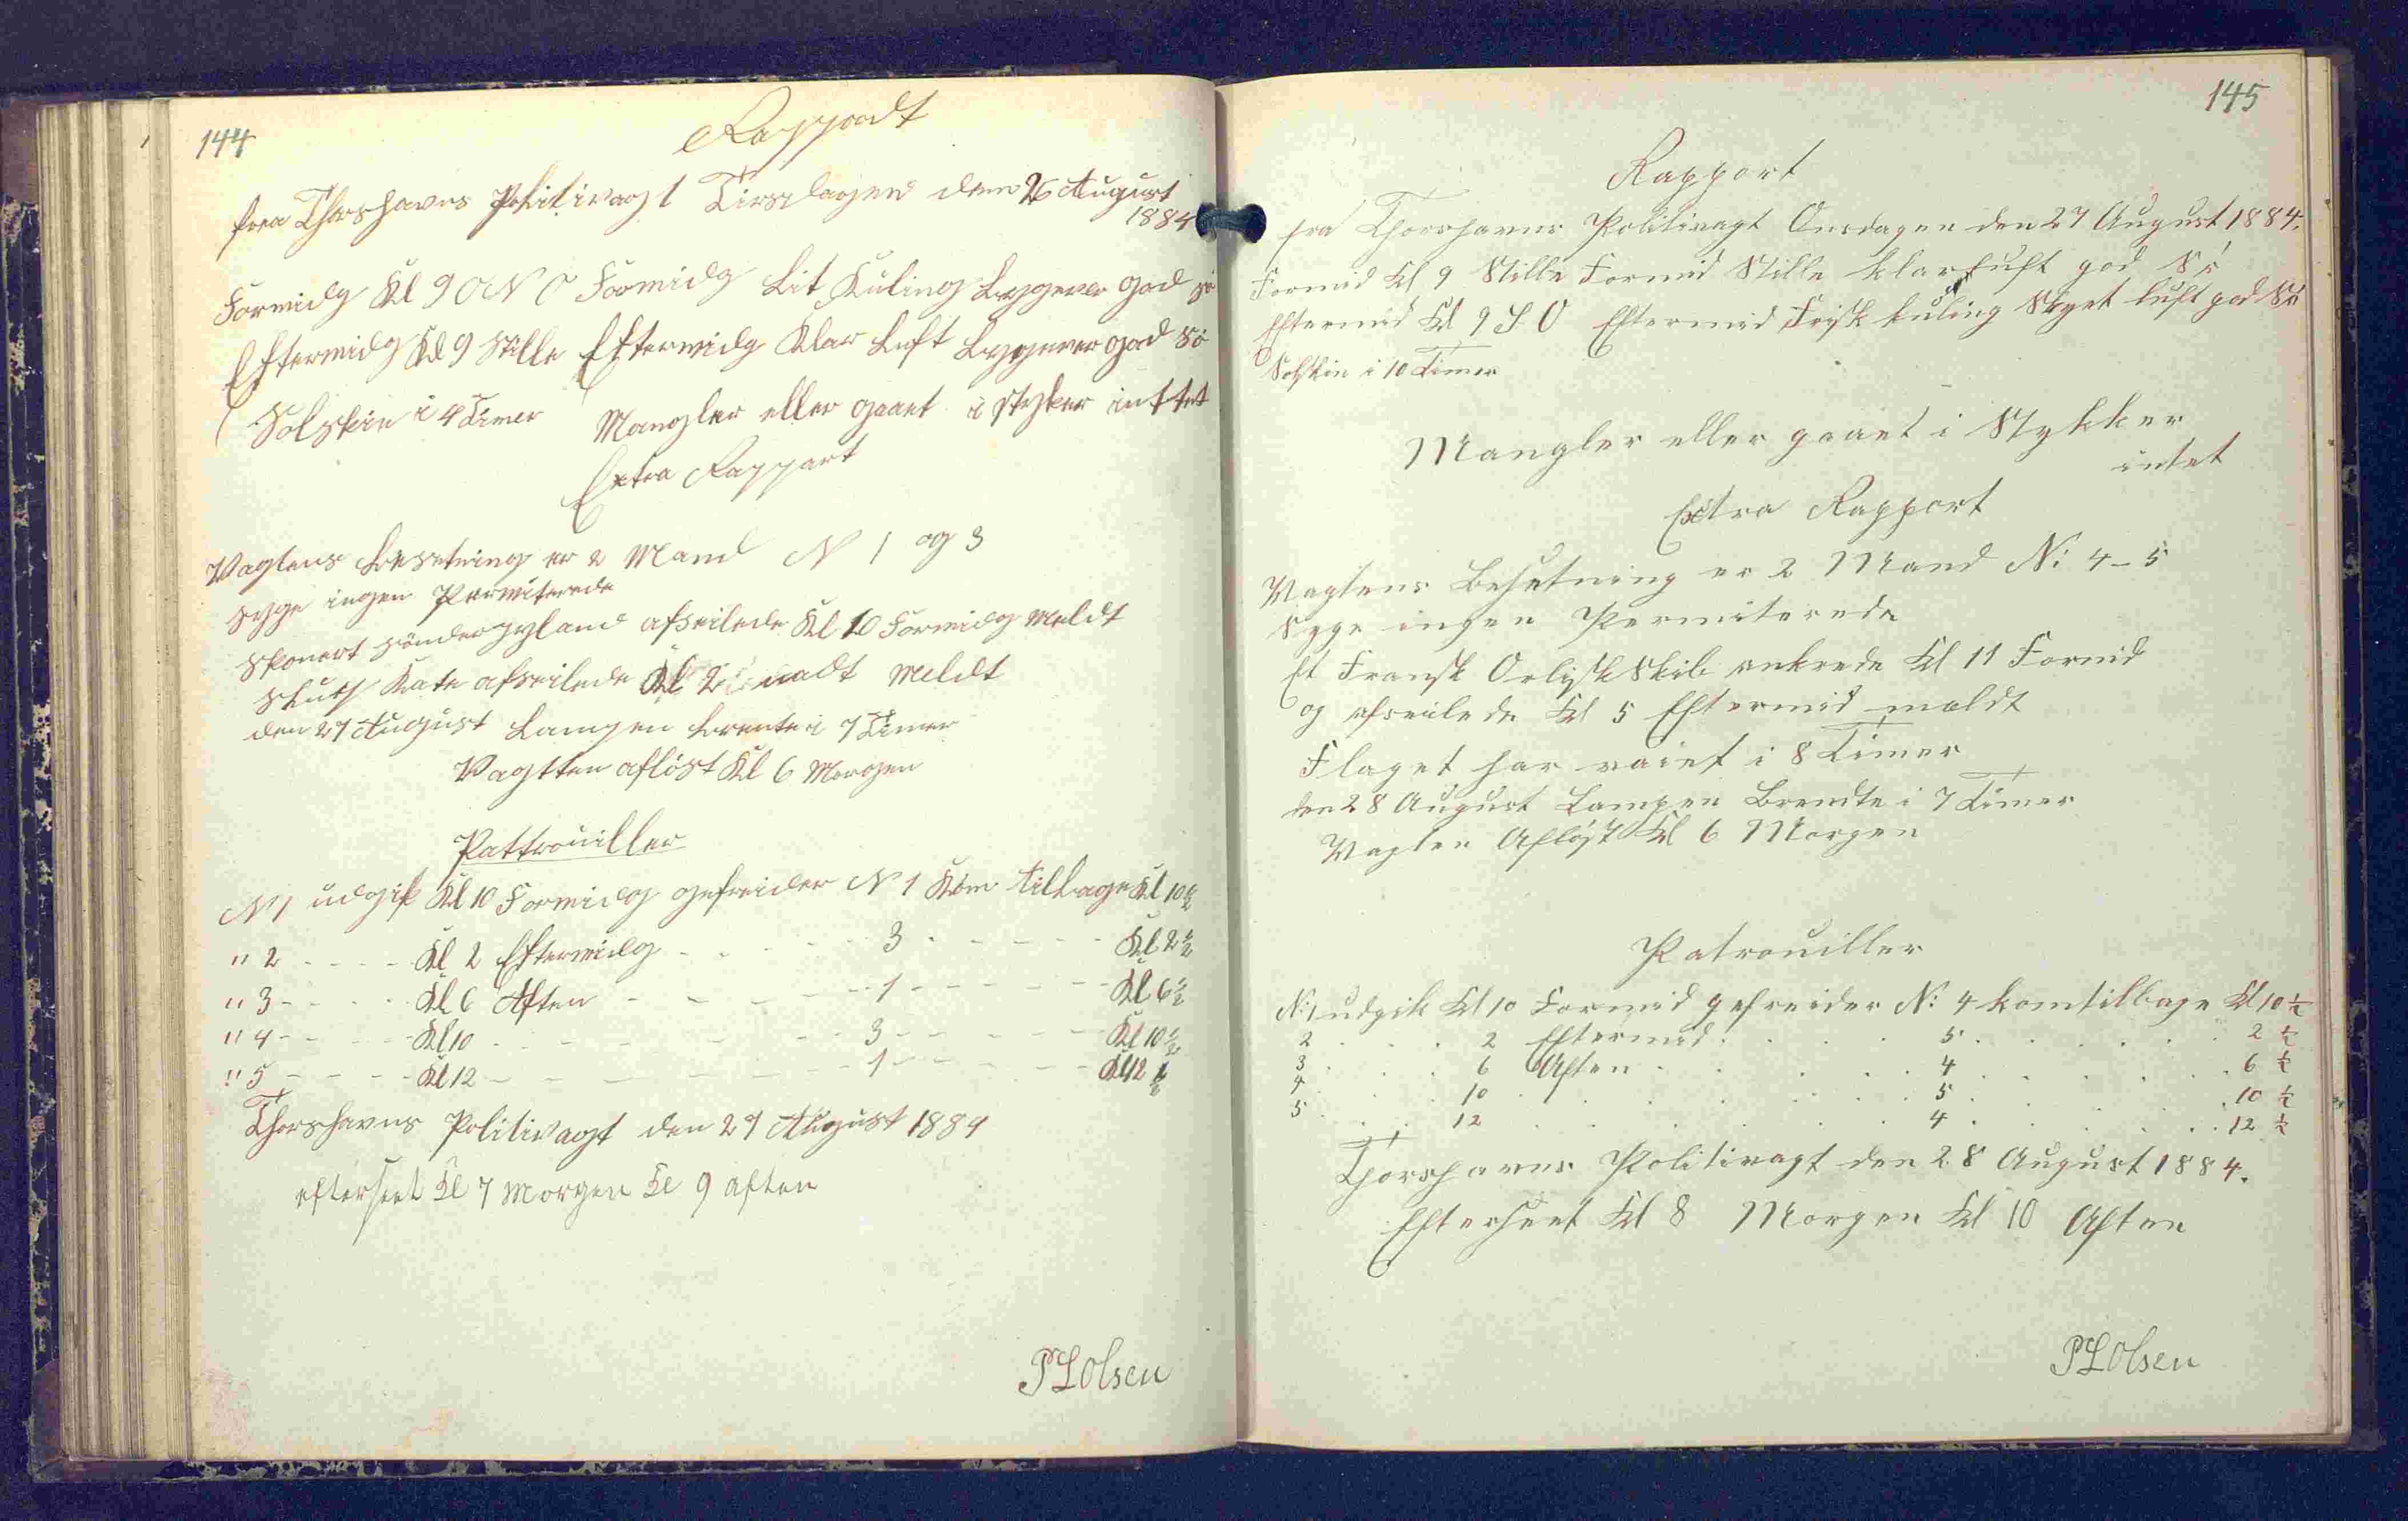 144
Rapportt
fra Thorshavns Politivagt Tirsdagen den 26 August
1884
Formidg Kl 9 O N O Formidg Lit Kuling Byger god sö
Eftermidg Kl 9 Stille Eftermidg Klar Luft Byger god Sö
Solskin i 4 Timer Mangler eller gaaet i styker inttet
Extra Rappart
Vagtens besetning er 2 Mand N 1 og 3
syge ingen Permiterede
Skonert sönderjyland afseilede Kl 10 Formidg Meldt
Sluth Kate afseilede Kl 2 Meldt
den 27 August Lampen brente i 7 Timer
Vagtten aflöst Kl 6 Morgen
Pattrouiller
N 1 udgik Kl 10 Formidg gefreider N 1 Kom tilbage Kl 10½
" 2 - - - - Kl 2 Eftermidg - - - - 3 - - - - - Kl 2½
" 3 - - - - Kl 6 Aften - - - - - 1 - - - - - Kl 6½
" 4 - - - - Kl 10 - - - - - - 3 - - - - - Kl 10½
" 5 - - - - Kl 12 - - - - - - 1 - - - - - Kl 12½
Thorshavns Politivagt den 27 August 1884
efterseet Kl 7 Morgen Kl 9 aften
PLOlsen
145
Rapport
fra Thorshavns Politivagt Onsdagen den 27 August 1884.
Formid Kl 9 Stille Formid Stille klar luft god Sö
Eftermid Kl 9 S. O Eftermid Frisk kuling Skyet luft god Sö
Solskin i 10 Timer
Mangler eller gaaet i Stykker
intet
Extra Rapport
Vagtens Besetning er 2 Mand N: 4 - 5
Syge ingen Permiterede
Et Fransk Orligsk Skib ankrede Kl 11 Formid
og afseilede Kl 5 Eftermid meldt
Flaget har vaiet i 8 Timer
den 28 August Lampen Brendte i 7 Timer
Vagten Afløst Kl 6 Morgen
Patrouiller
N: 1 udgik Kl 10 Formid gefreider N: 4 kom tilbage Kl 10 ½
2 . . . 2 Eftermid . . . . 5 . . . . . 2 ½
3 . . . 6 Aften . . . . 4 . . . . . 6 ½
4 . . . 10 . . . . . . 5 . . . . . 10 ½
5 . . . 12 . . . . . . 4 . . . . . 12 ½
Thorshavns Politivagt den 28 August 1884.
Efterseet Kl 8 Morgen Kl 10 Aften
PLOlsen